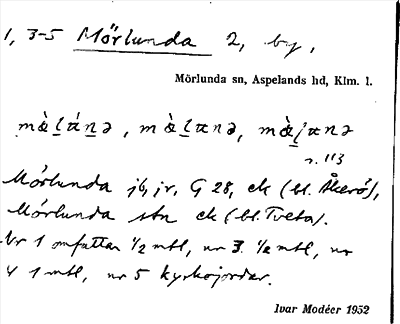 1, 3-5 Mörlunda 2, by,
Mörlunda sn, Aspelands hd, Klm. l.
mɑ̀l̠ɑ́n̠ə, mɑ̀l̠ɑnə, mɑ̀l̠ɑnə
n. 113
Mörlunda jb, jr, G 28, ek (bl. Åkerö),
Mörlunda stn ek (bl. Tveta).
Nr 1 omfattar 1/2 mtl, nr 3 1/2 mtl, nr
4 1 mtl, nr 5 kyrkojordar.
Ivar Modéer 1952